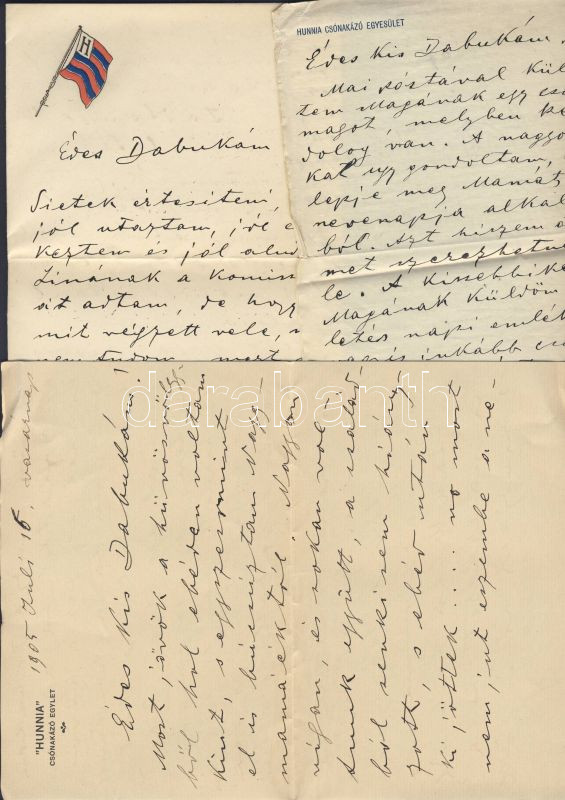 Édes Dabukám
Sietek értesíteni,
jól utaztam, jól é
keztem és jól alud
Linának a komiss
át adtam, de hogy
mit végzett vele,
nem tudom, mert
HUNNIA CSÓNAKÁZÓ EGYESÜLET
Édes kis Dabukám.
Mai póstával kül
tem Magának egy cso
magot, melyben ké
dolog van. A nagyo
kat ugy gondoltam,
lepje meg Mamát
nevenapja alkal
ból. Azt hiszem
met szerezhetne
le. A kissebbike
Magának küldöm
letés napi emlék
inkább
"HUNNIA"
CSÓNAKÁZÓ EGYLET
1905 Juli 16. vasárnap
Édes kis Dabukám!
Most jövök a hüvösvölgy-
ből hol ebéden voltam
kint, s egyszersmint
el is búcsuztam Nagy-
mamáéktól. Nagyon
vígan, és sokan vol-
tunk együtt, a család-
ból senki sem hiány-
zott, s ebéd után
ki jöttek.... no most
nem jut eszembe a ne-
darabanth